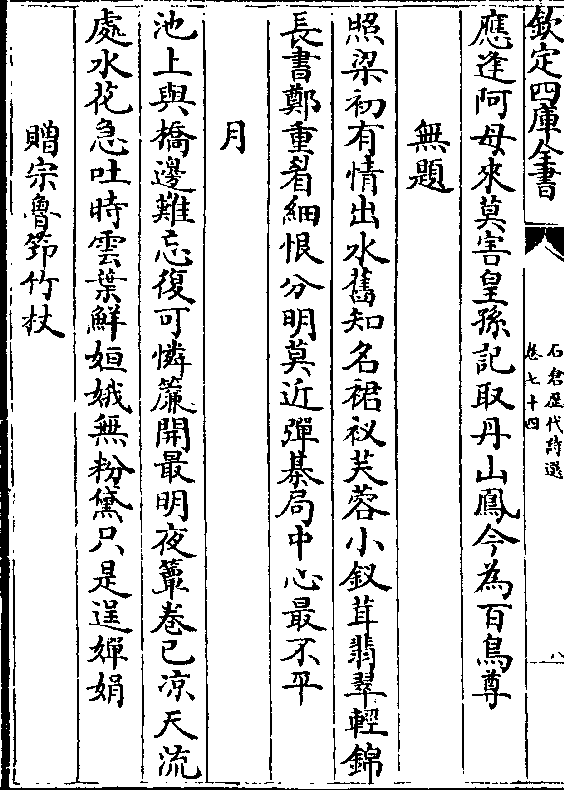 欽定四庫全書
石倉歷代詩選
卷七十四
八
應逢阿母來莫害皇孫記取丹山鳳今為百鳥尊
無題
照梁初有情出水舊知名裙衩芙蓉小釵茸翡翠輕錦
長書鄭重眉細恨分明莫近彈棊局中心最不平
月
池上與橋邊難忘復可憐簾開最明夜簟卷已凉天流
處水花急吐時雲葉鮮姮娥無粉黛只是逞嬋娟
贈宗魯筇竹杖